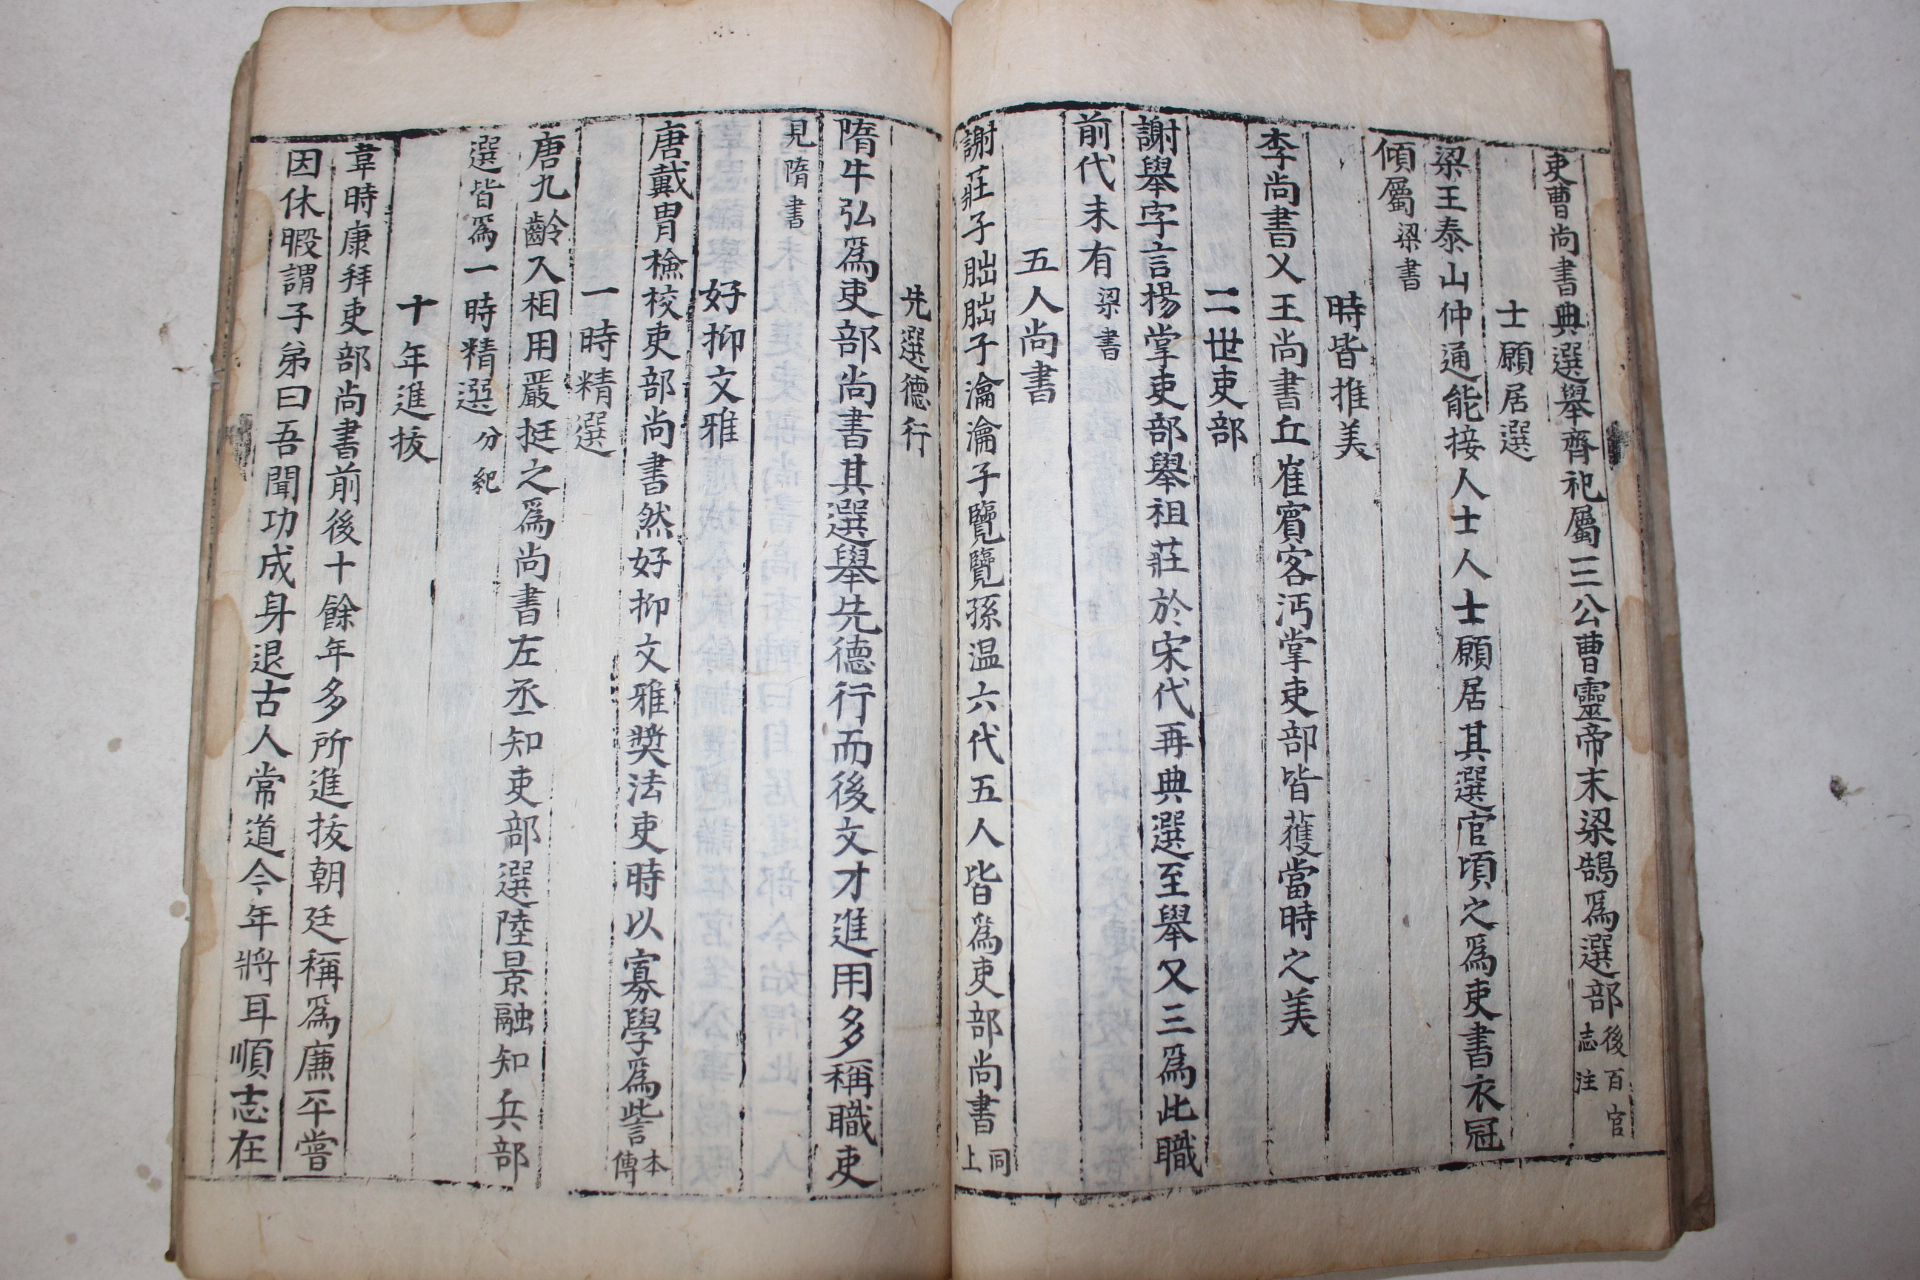 吏曹尚書典選舉齊祀屬三公曹靈帝末梁鵠爲選部後百官志注
士願居選
梁王泰山仲通能接人士人士願居其選官頃之爲吏書衣冠
傾屬梁書
時皆推美
李尚書乂王尚書丘崔賓客沔掌吏部皆蒦當時之美
二世吏部
謝舉字言揚掌吏部舉祖莊於宋代再典選至舉又三爲此職
前代未有梁書
五人尚書
謝莊子朏朏子瀹瀹子覽覽孫温六代五人皆爲吏部尚書同上
先選德行
隋牛弘爲吏部尚書其選舉先德行而後文才進用多稱職吏
見隋書
好抑文雅
唐戴冑檢校吏部尚書然好抑文雅奬法吏時以寡學爲訾本傳
一時精選
唐九齡入相用嚴挺之爲尚書左丞知吏部選陸景融知兵部
選皆爲一時精選分紀
十年進拔
韋時康拜吏部尚書前後十餘年多所進拔朝廷稱爲廉平嘗
因休暇謂子弟曰吾聞功成身退古人常道今年將耳順志在